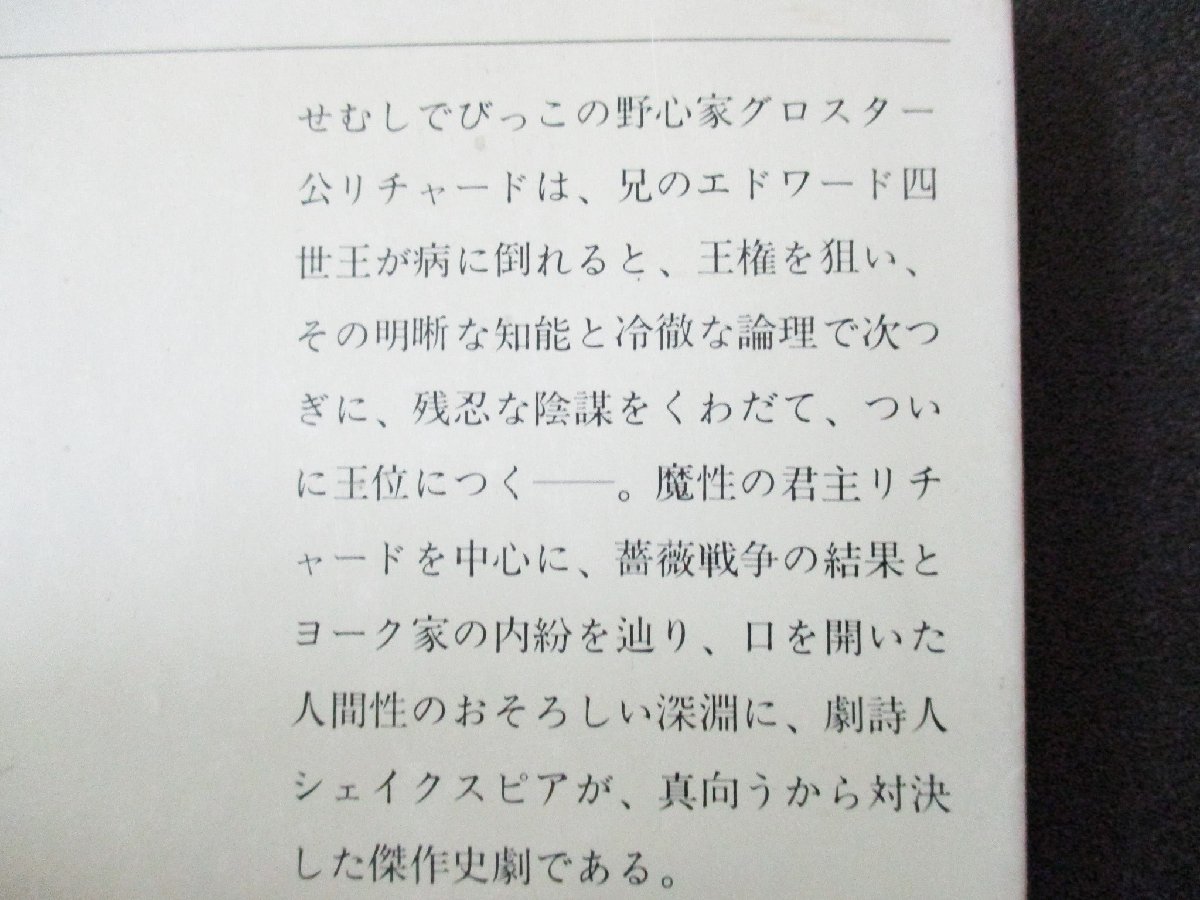 せむしでびっこの野心家グロスター
公リチャードは、兄のエドワード四
世王が病に倒れると、王権を狙い、
その明晰な知能と冷徹な論理で次つ
ぎに、残忍な陰謀をくわだて、つい
に王位につく――。魔性の君主リチ
ャードを中心に、薔薇戦争の結果と
ヨーク家の内紛を辿り、口を開いた
人間性のおそろしい深淵に、劇詩人
シェイクスピアが、真向うから対決
した傑作史劇である。